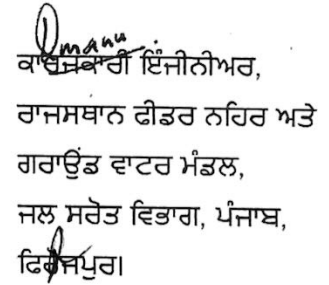 ਕਾਰਜਕਾਰੀ ਇੰਜੀਨੀਅਰ,
ਰਾਜਸਥਾਨ ਫੀਡਰ ਨਹਿਰ ਅਤੇ
ਗਰਾਉਂਡ ਵਾਟਰ ਮੰਡਲ,
ਜਲ ਸਰੋਤ ਵਿਭਾਗ, ਪੰਜਾਬ,
ਫਿਰੋਜਪੁਰ।